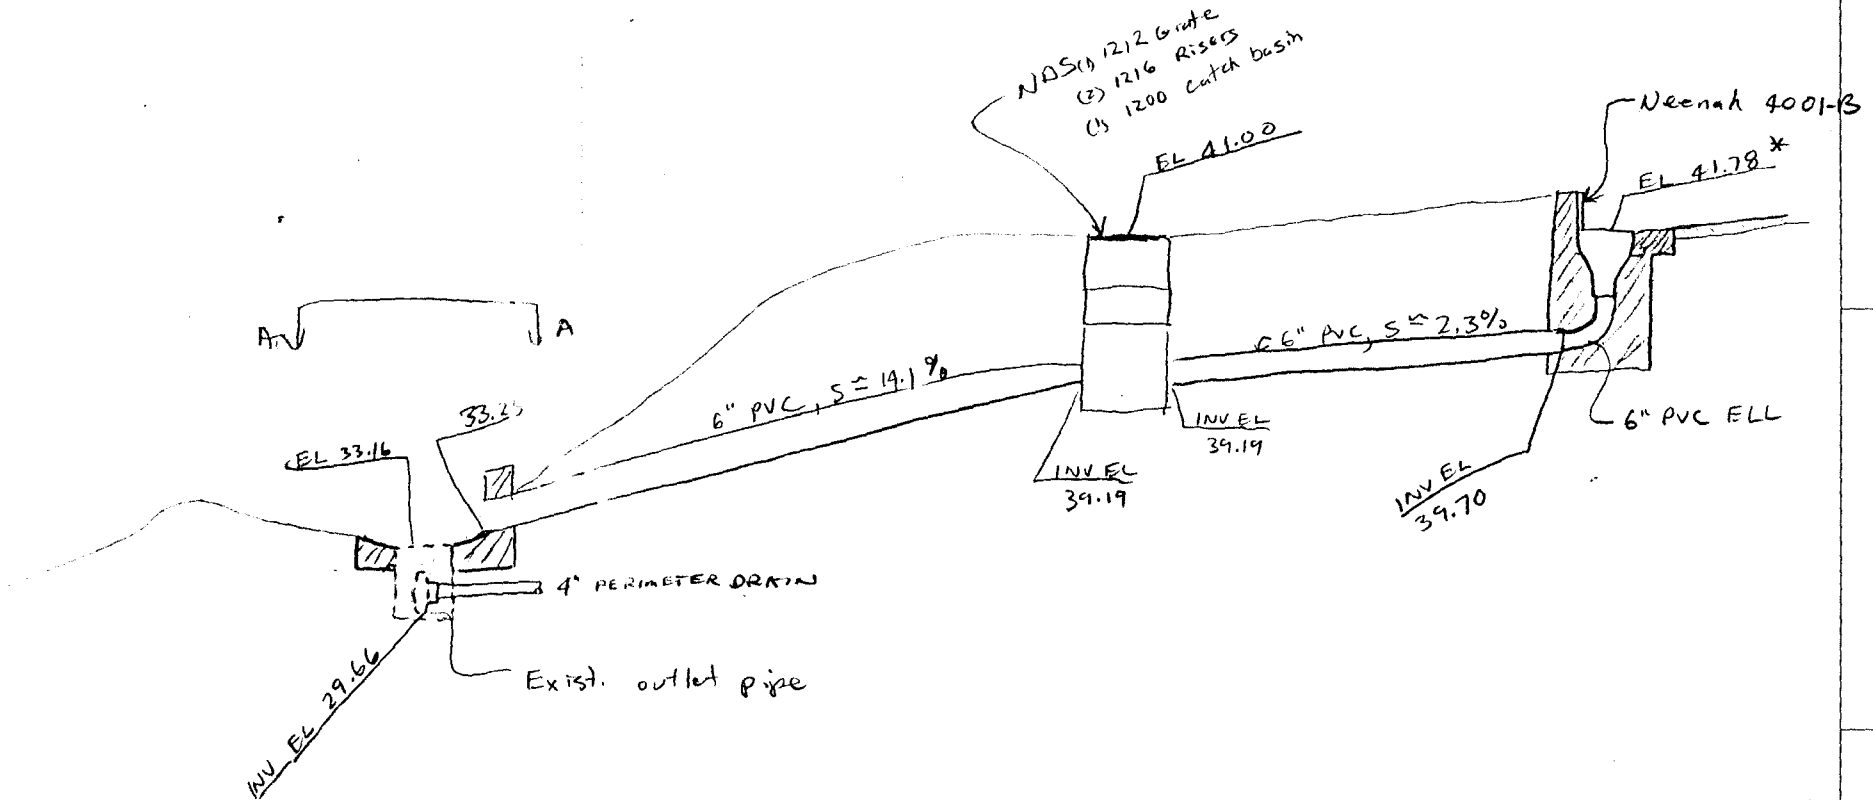 NDS (1) 1212 Grate
(2) 1216 Risers
(1) 1200 catch basin
Neenah 4001-B
EL 41.00
EL 41.78 *
A
A
6" PVC, S ≈ 2.3%
6" PVC, S ≈ 14.1%
33.25
EL 33.16
INV EL
39.19
INV EL
39.19
6" PVC ELL
INV EL
39.70
4" PERIMETER DRAIN
Exist. outlet pipe
INV EL 29.66